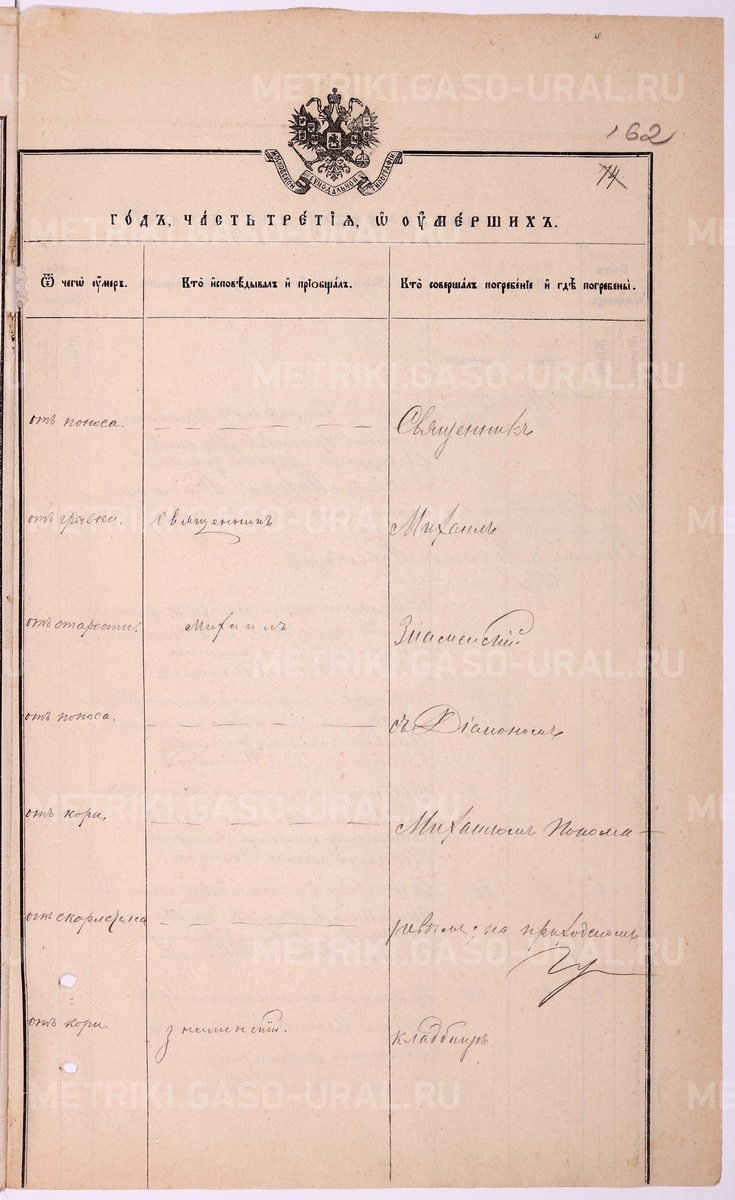 METRIKI.GASO-URAL.RU
162
74
МОСКОВСКОЙ СѴНОДАЛЬНОЙ ТИПОГРАФІИ
ГОДЪ, ЧАСТЬ ТРЕТІЯ, Ѿ ОУМЕРШИХЪ.
Ѿ чегѡ оумеръ.
Кто исповѣдывалъ и пріобщалъ.
Кто совершалъ погребеніе и гдѣ погребены.
отъ поноса.
Священникъ
отъ грыжи. священникъ
Михаилъ
отъ старости. Михаилъ
Знаменскій
отъ поноса.
съ Діакономъ
отъ кори,
Михаиломъ Понома-
отъ скарлатина
ревымъ; на приходскомъ
отъ кори. Знаменскій.
кладбищѣ.